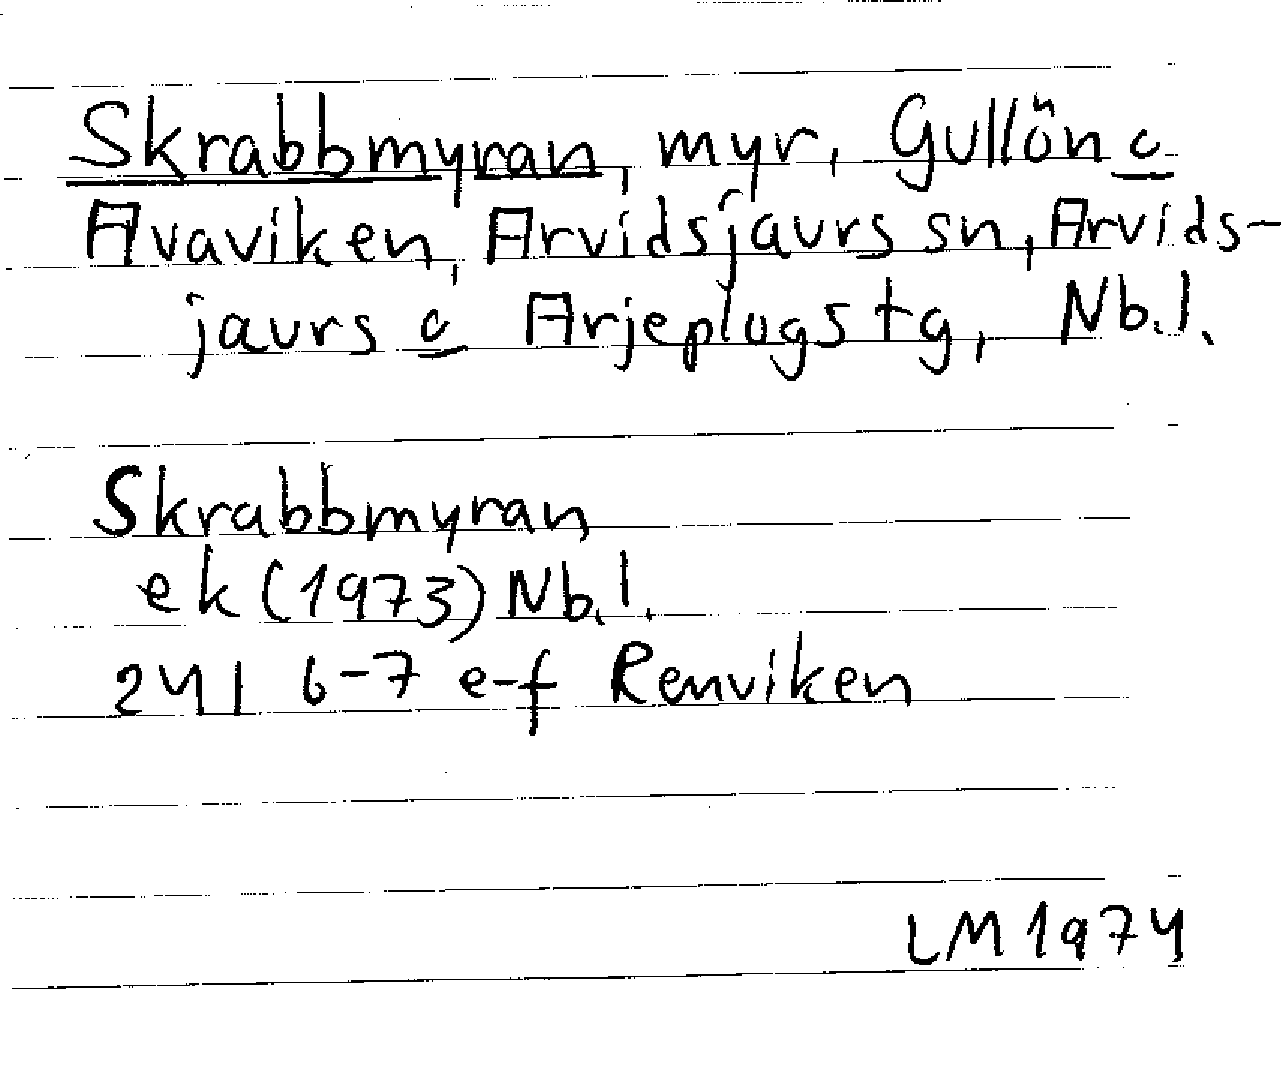 Skrabbmyran, myr, Gullön o
Avaviken, Arvidsjaurs sn, Arvids-
jaurs o Arjeplogs tg, Nb.l.
Skrabbmyran
ek (1973) Nb.l.
24I 6-7 e-f Renviken
LM 1974